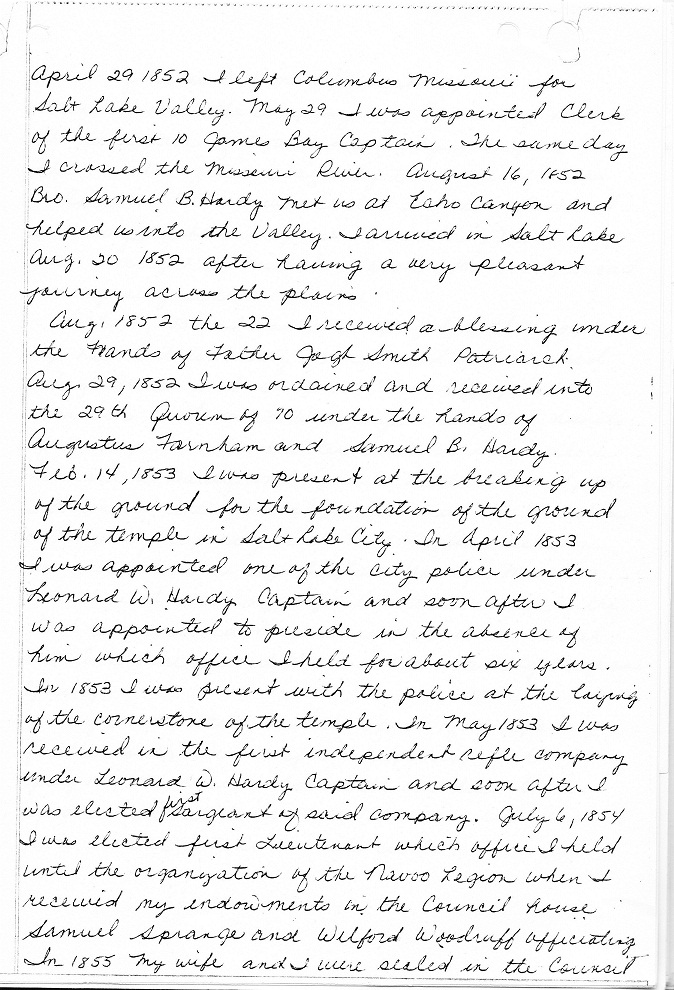 April 29 1852 I left Columbus Missouri for
Salt Lake Valley. May 29 I was appointed Clerk
of the first 10 James Bay Captain. The same day
I crossed the Missouri River. August 16, 1852
Bro. Samuel B. Hardy met us at Echo Canyon and
helped us into the Valley. I arrived in Salt Lake
Aug. 20 1852 after having a very pleasant
journey across the plains.
Aug. 1852 the 22 I received a blessing under
the Hands of Father Smith Patriarch.
Aug. 29, 1852 I was ordained and received into
the 29th Quorum of 70 under the hands of
Augustus Farnham and Samuel B. Hardy.
Feb. 14, 1853 I was present at the breaking up
of the ground for the foundation of the ground
of the temple in Salt Lake City. In April 1853
I was appointed one of the city police under
Leonard W. Hardy Captain and soon after I
was appointed to preside in the absence of
him which office I held for about six years.
In 1853 I was present with the police at the laying
of the cornerstone of the temple. In May 1853 I was
received in the first independent refle company
under Leonard W. Hardy Captain and soon after I
was elected first Sargeant of said company. July 6, 1854
I was elected first Lieutenant which office I held
until the organization of the Navoo Legion when I
received my endowments in the Council house
Samuel Sprange and Wilford Woodruff officiating
In 1855 my wife and I were sealed in the Council